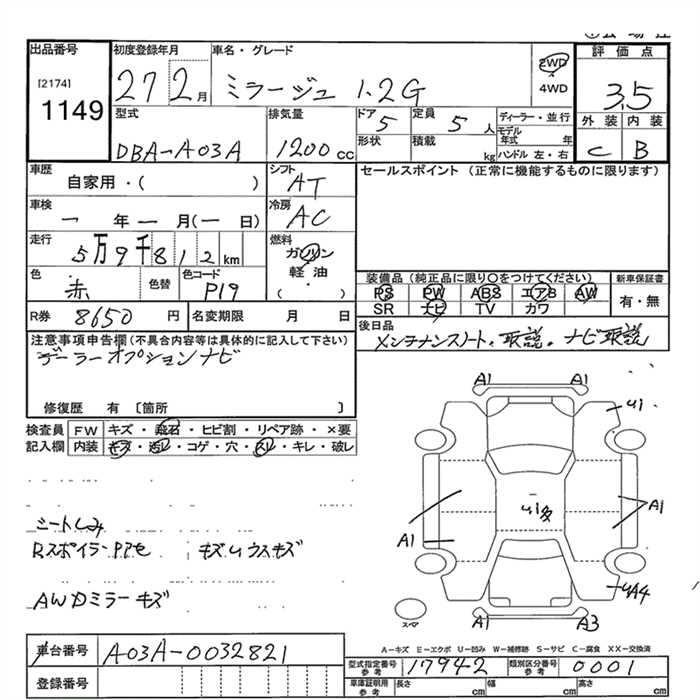 出品番号
[2174]
1149
初度登録年月
27 2月
車名・グレード
ミラージュ 1.2G
2WD
4WD
評価点
3.5
外装 内装
C B
型式
DBA-A03A
排気量
1200 CC
ドア
5
形状
定員
5 人
積載
kg
ディーラー・並行
モデル年式 年
ハンドル 左・右
車歴
自家用・( )
シフト
AT
車検
一 年 一 月(一 日)
冷房
AC
走行
5万9千812km
燃料
ガソリン
軽油
( )
色
赤
色替
色コード
P19
R券 8650 円
名変期限 月 日
セールスポイント(正常に機能するものに限ります)
装備品(純正品に限り○をつけてください)
PS PW ABS エアB AW
SR ナビ TV カワ
新車保証書
有・無
後日品
メンテナンスノート、取説。ナビ取説
注意事項申告欄(不具合内容等は具体的に記入して下さい)
デーラーオプションナビ
修復歴 有〔箇所 〕
検査員記入欄
FW キズ・飛石・ヒビ割・リペア跡・×要
内装 キズ・汚レ・コゲ・穴・スレ・キレ・破レ
シートしみ
Rスポイラー
キズ U ウスキズ
AWDミラーキズ
A1 A1
U1
A1
A1
A1 A3
UA4
スペア
A-キズ E-エクボ U-凹み W-補修跡 S-サビ C-腐食 XX-交換済
車台番号 A03A-0032821
登録番号
型式指定番号 参考 17942
類別区分番号 参考 0001
車庫証明用 参考 長さ cm 幅 cm 高さ cm